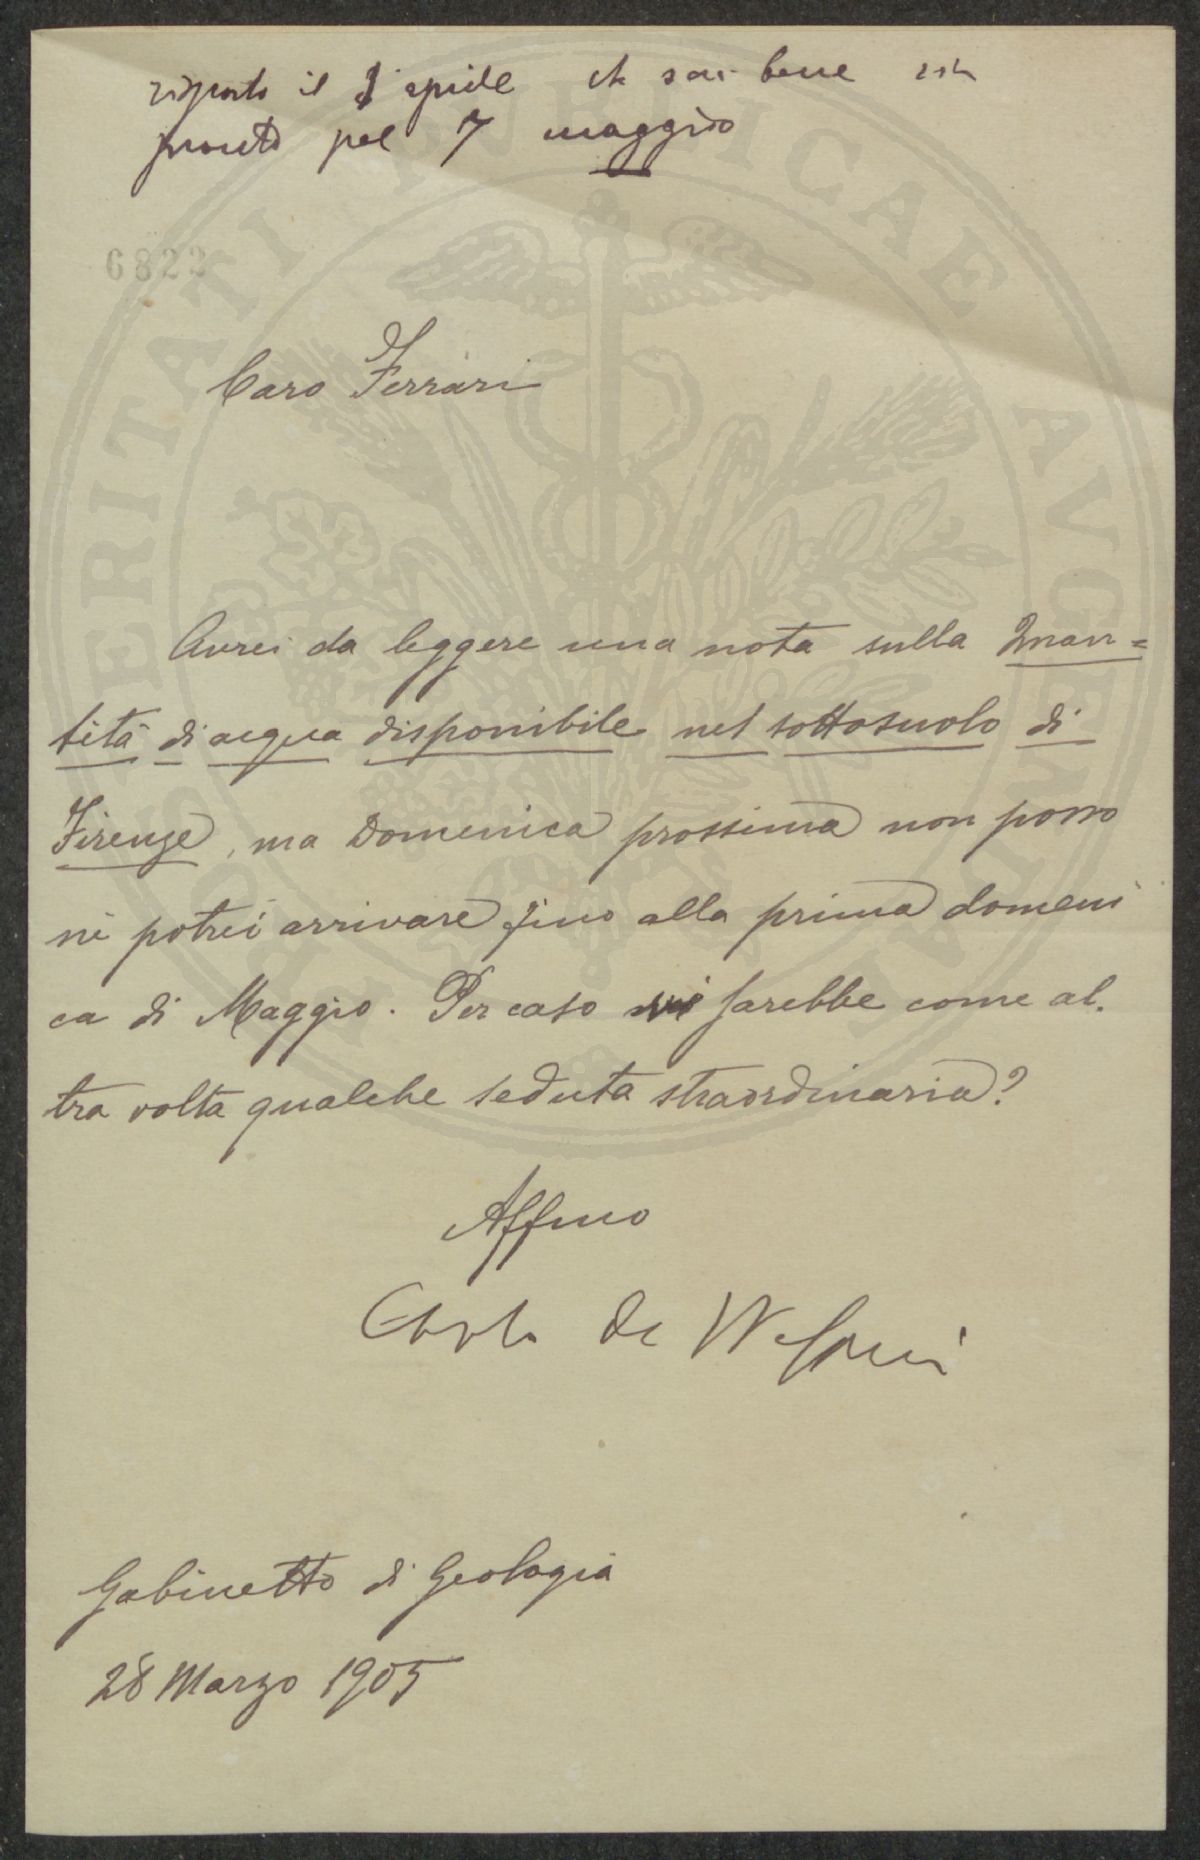 risposto il 1 aprile che sar bene sia
pronto pel 7 maggio
6822
Caro Ferrari
Avrei da leggere una nota sulla Quan=
tità di acqua disponibile nel sottosuolo di
Firenze, ma Domenica prossima non posso
nè potrei arrivare fino alla prima domeni
ca di Maggio. Per caso vi sarebbe come al.
tra volta qualche seduta straordinaria?
Affmo
Carlo De
Gabinetto di Geologia
28 Marzo 1905